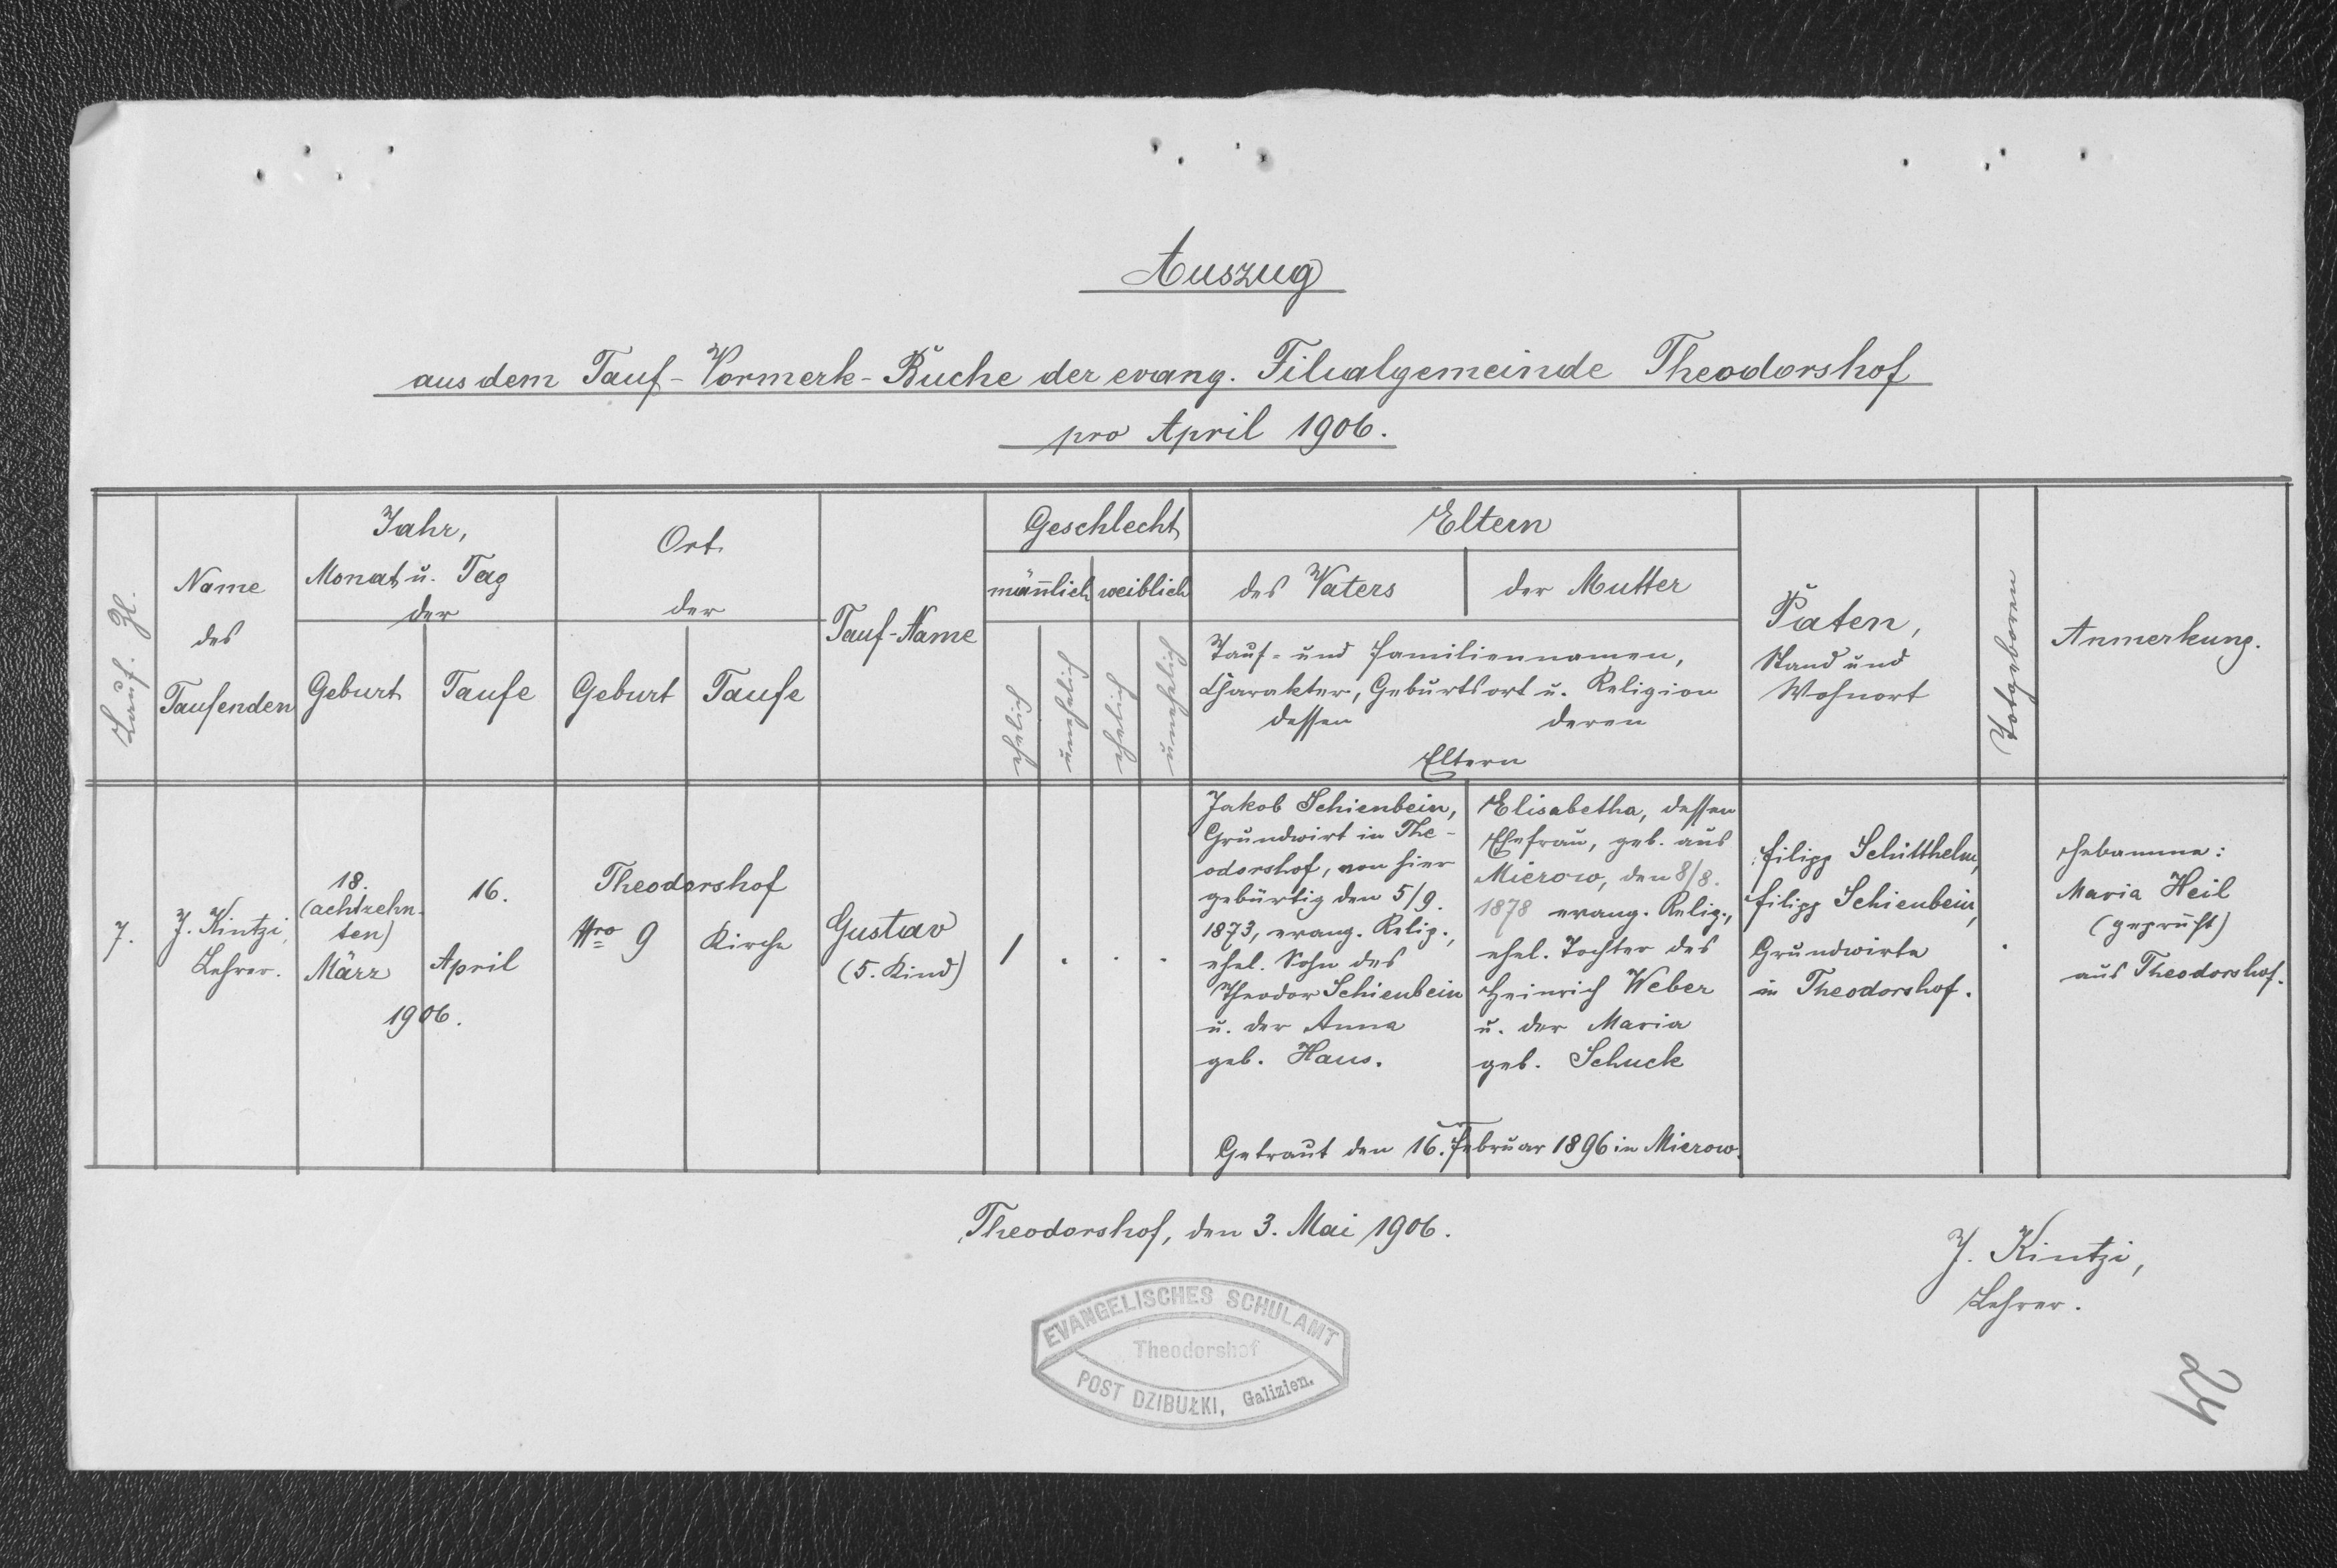 Auszug
aus dem Tauf-Vormerk-Buche der evang. Filialgemeinde Theodorshof
pro April 1906.
Lauf. Zl.
Name
des
Taufenden
Jahr,
Monat u. Tag
der
Geburt
Taufe
Ort
der
Geburt
Taufe
Tauf-Name
Geschlecht
mänlich
weiblich
ehelich
unehelich
ehelich
unehelich
Eltern
des Vaters
der Mutter
Tauf- und Familiennamen,
Charakter, Geburtsort u. Religion
dessen
deren
Eltern
Paten,
Stand und
Wohnort
Totgeboren
Anmerkung.
7.
J. Kintzi,
Lehrer.
18.
(achtzehn-
ten)
März
16.
April
1906.
Theodorshof
Nro 9
Kirche
Gustav
(5. Kind)
1
.
.
.
Jakob Schienbein,
Grundwirt in The-
odorshof, von hier
gebürtig den 5/9.
1873, evang. Relig.,
ehel. Sohn des
Theodor Schienbein
u. der Anna
geb. Haus.
Elisabetha, dessen
Ehefrau, geb. aus
Mierow, den 8/8.
1878 evang. Relig.,
ehel. Tochter des
Heinrich Weber
u. der Maria
geb. Schuck
Getraut den 16. Februar 1896 in Mierow.
Filipp Schütthelm,
Filipp Schienbein,
Grundwirte
in Theodorshof.
.
Hebamme:
Maria Heil
(geprüft)
aus Theodorshof.
Theodorshof, den 3. Mai 1906.
J. Kintzi,
Lehrer.
EVANGELISCHES SCHULAMT
Theodorshof
POST DZIBUŁKI, Galizien.